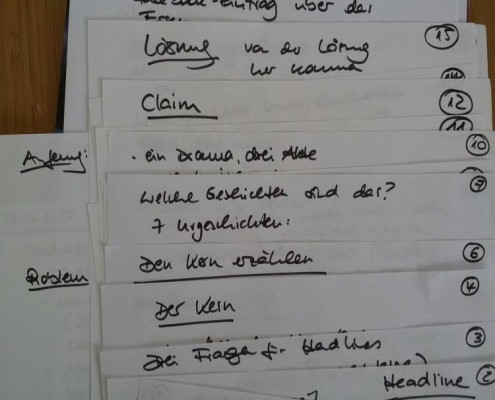 -Eintrag über der
Lösung von der Lösung
her
15
14
Claim
12
11
Anfang:
· ein Drama, drei Akte
10
Welche Geschichten sind das?
7 Urgeschichten:
9
Den Kern erzählen
6
Problem
Der Kern
4
Drei Fragen für Headlines
3
Headline
2